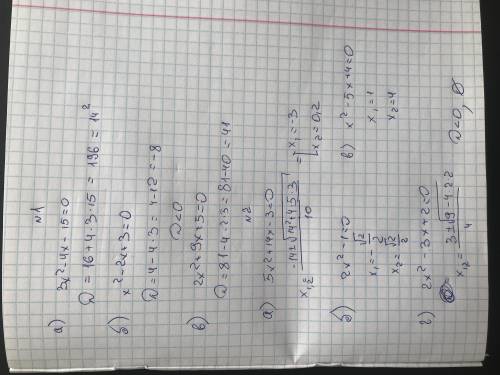 n1
а) 3x²-4x-15=0
D=16+4·3·15=196=14²
б) x²-2x+3=0
D=4-4·3=4-12=-8
D<0
в) 2x²+9x+5=0
D=81-4·2·5=81-40=41
n2
а) 5x²+14x-3=0
x₁,₂=(-14±√(14²+4·5·3))/10=[x₁=-3
x₂=0,2
б) 2x²-1=0
x₁=-√2/2
x₂=√2/2
в) x²-5x+4=0
x₁=1
x₂=4
г) 2x²-3x+2=0
x₁,₂=(3±√(9-4·2·2))/4
D<0, ∅